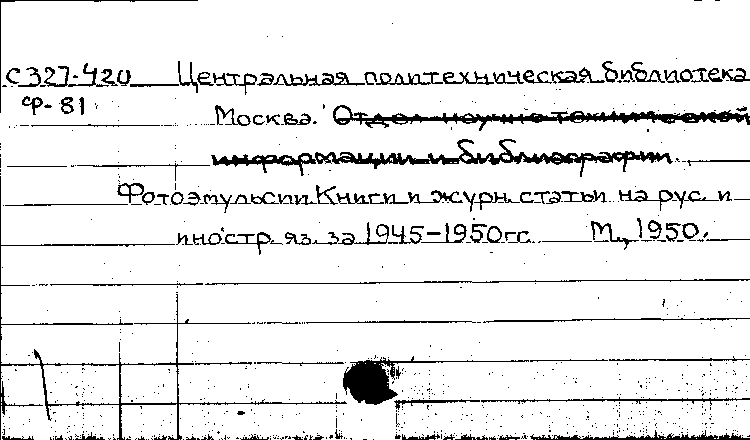 С327-420 Центральная политехническая библиотека
ср-81 Москва. Отдел научно-технической
информации и библиографии.
Фотоэмульсии. Книги и журн. статьи на рус. и
иностр. яз. за 1945-1950гг. М., 1950.